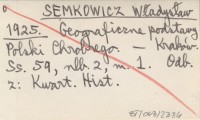 SEMKOWICZ Władysław
1925. Geograficzne podstawy
Polski Chrobrego. — Kraków.
Ss. 59, nlb 2, m. 1. Odb.
z: Kwart. Hist.